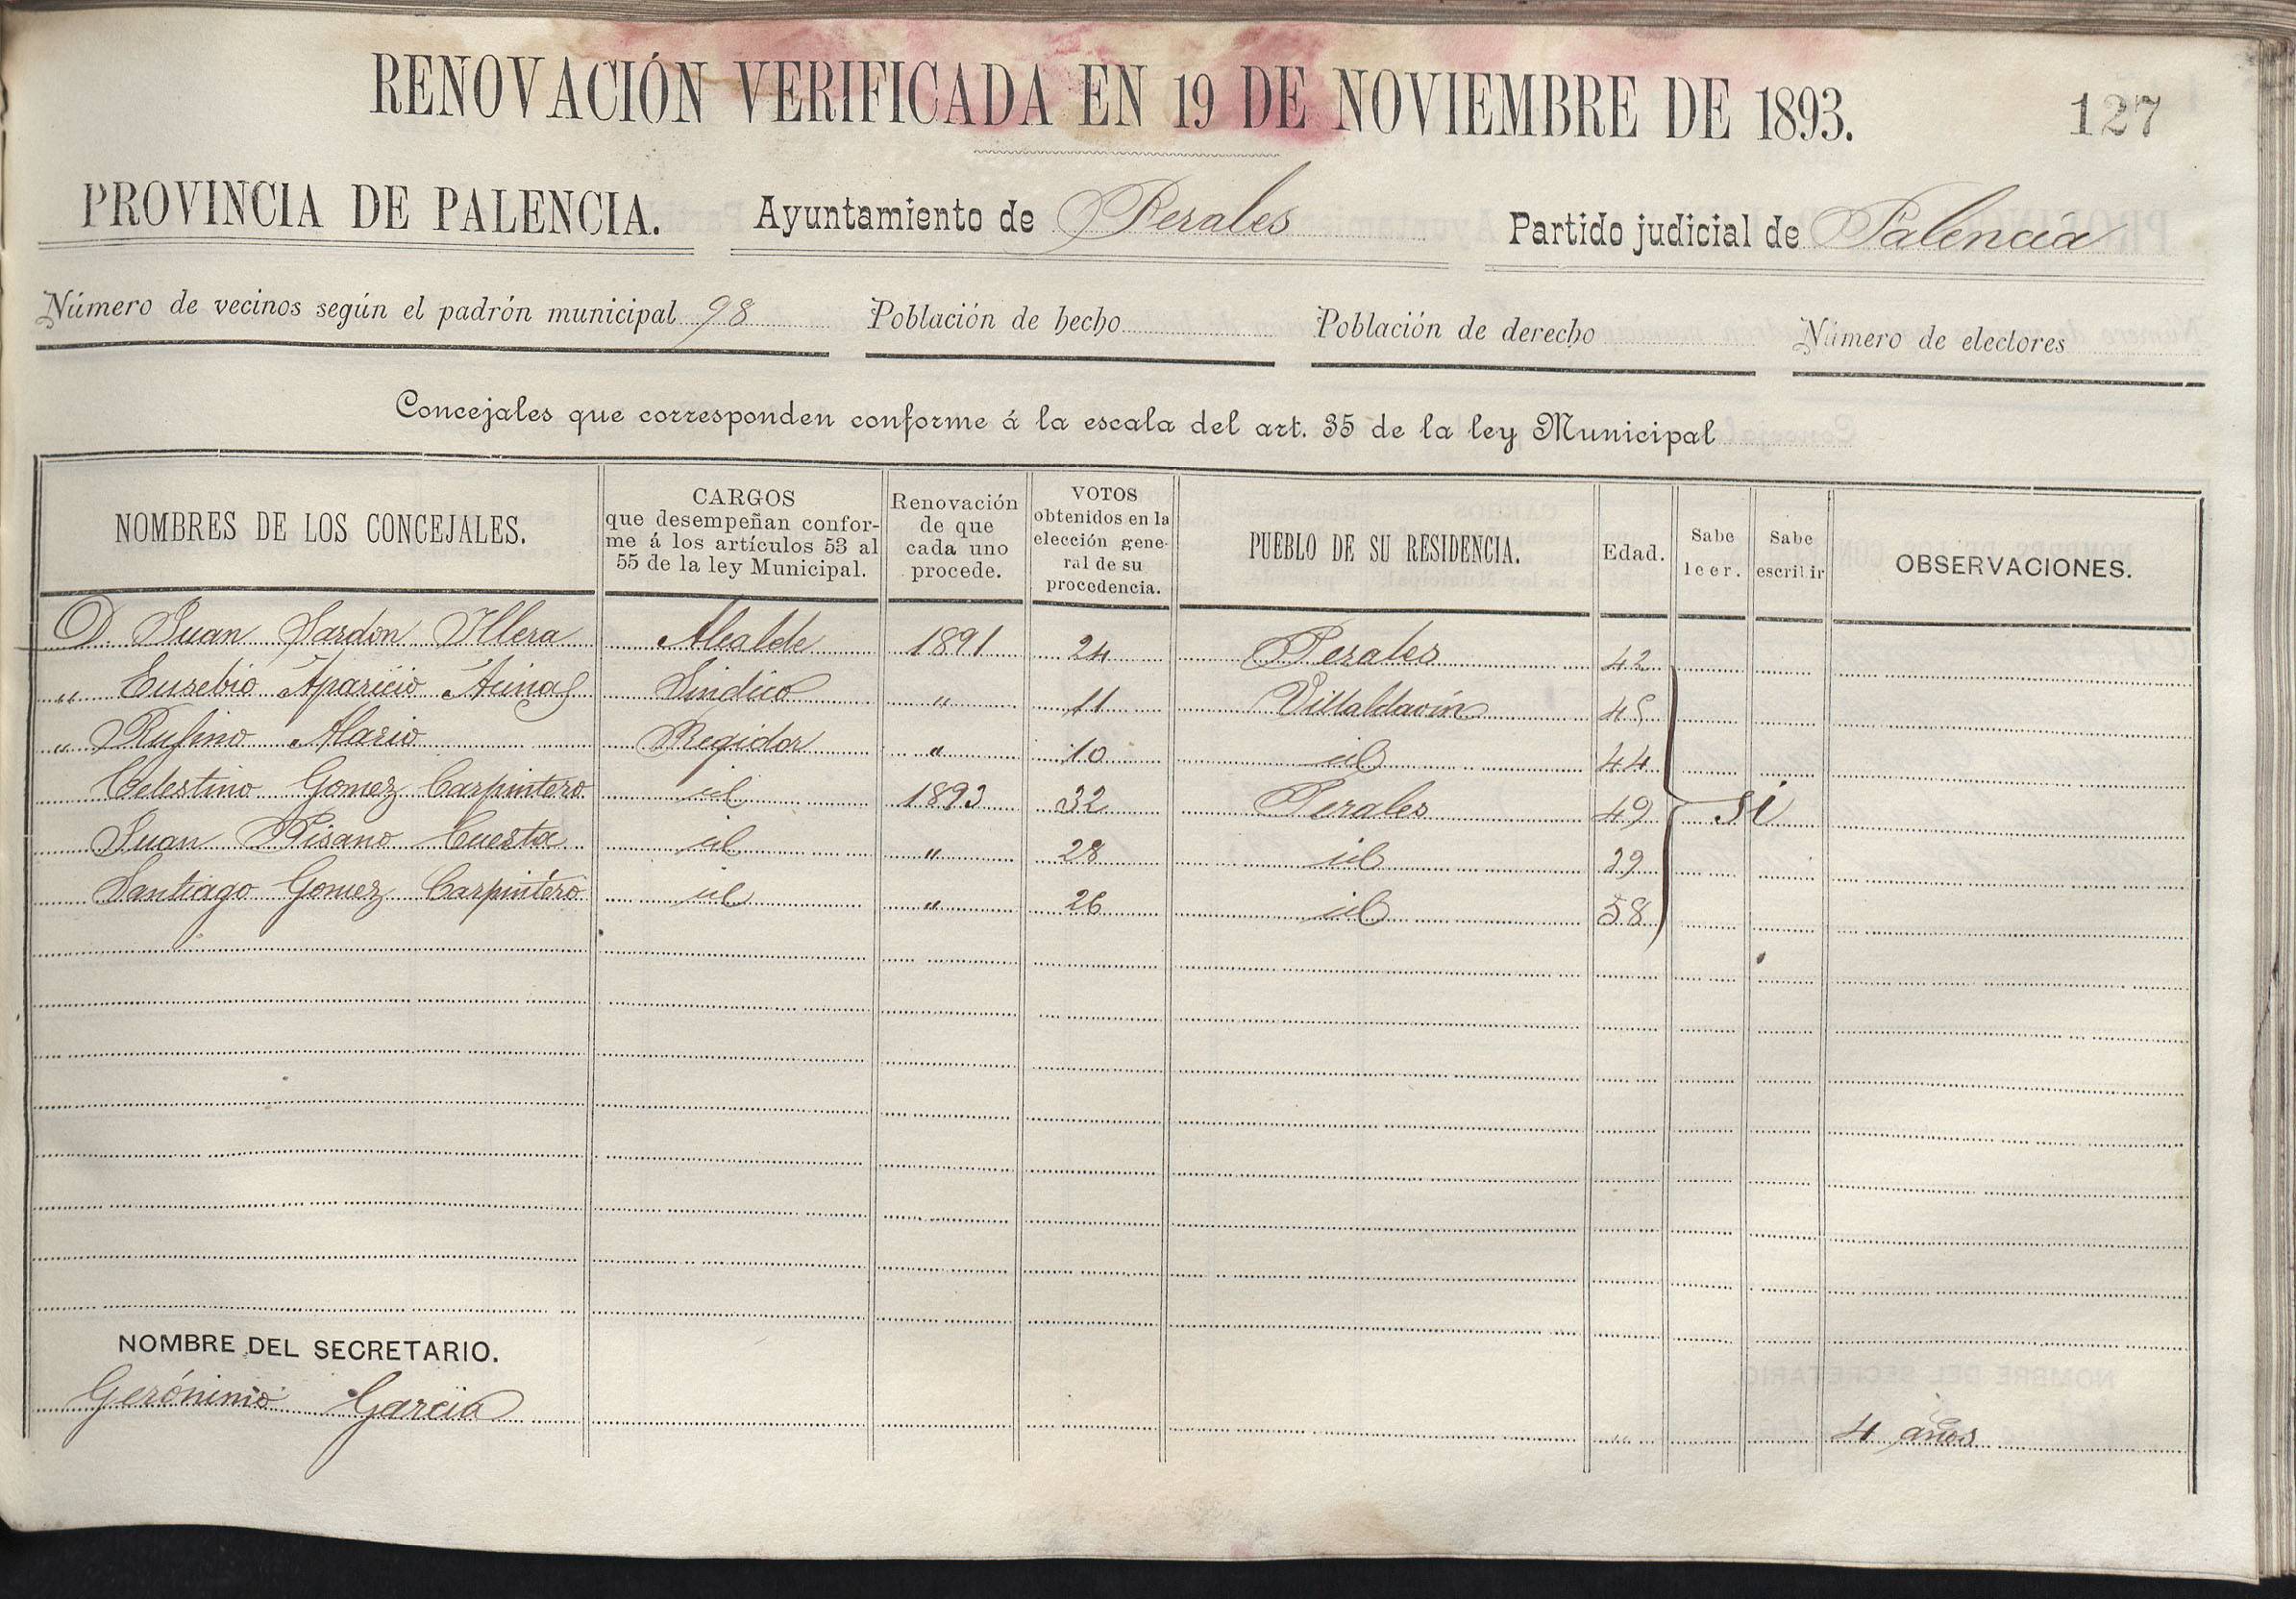 RENOVACIÓN VERIFICADA EN 19 DE NOVIEMBRE DE 1893. 127
PROVINCIA DE PALENCIA. Ayuntamiento de Perales Partido judicial de Palencia
Número de vecinos según el padrón municipal 98 Población de hecho Población de derecho Número de electores
Concejales que corresponden conforme á la escala del art. 35 de la ley Municipal
NOMBRES DE LOS CONCEJALES. CARGOS que desempeñan confor- me á los artículos 53 al 55 de la ley Municipal. Renovación de que cada uno procede. VOTOS obtenidos en la elección gene- ral de su procedencia. PUEBLO DE SU RESIDENCIA. Edad. Sabe leer. Sabe escribir OBSERVACIONES.
D. Juan Sardon Illera Alcalde 1891 24 Perales 42
" Eusebio Aparicio Acinas Sindico " 11 Villaldavin 45
" Rufino Alario Regidor " 10 id 44
Celestino Gomez Carpintero id 1893 32 Perales 49 si
Juan Pisano Cuesta id " 28 id 29
Santiago Gomez Carpintero id " 26 id 58
NOMBRE DEL SECRETARIO.
Gerónimo Garcia " 4 años